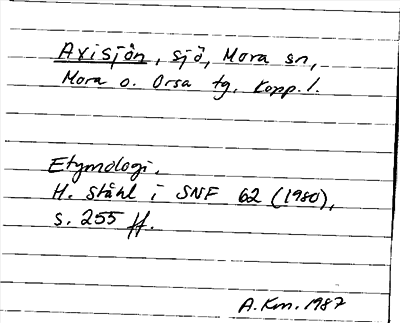 Axisjön, sjö, Mora sn,
Mora o. Orsa tg, Kopp. l.
Etymologi.
H. Ståhl i SNF 62 (1980),
s. 255 ff.
A. Km. 1987